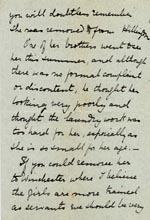 you will doubtless remember
She was removed from
One of her brothers went to see
her this summer, and although
there was no formal complaint
or discontent, he thought her
looking very poorly and
thought the laundry work was
too hard for her, especially as
she is so small for her age. —
If you could remove her
to Winchester where I believe
the girls are more trained
as servants we should be very